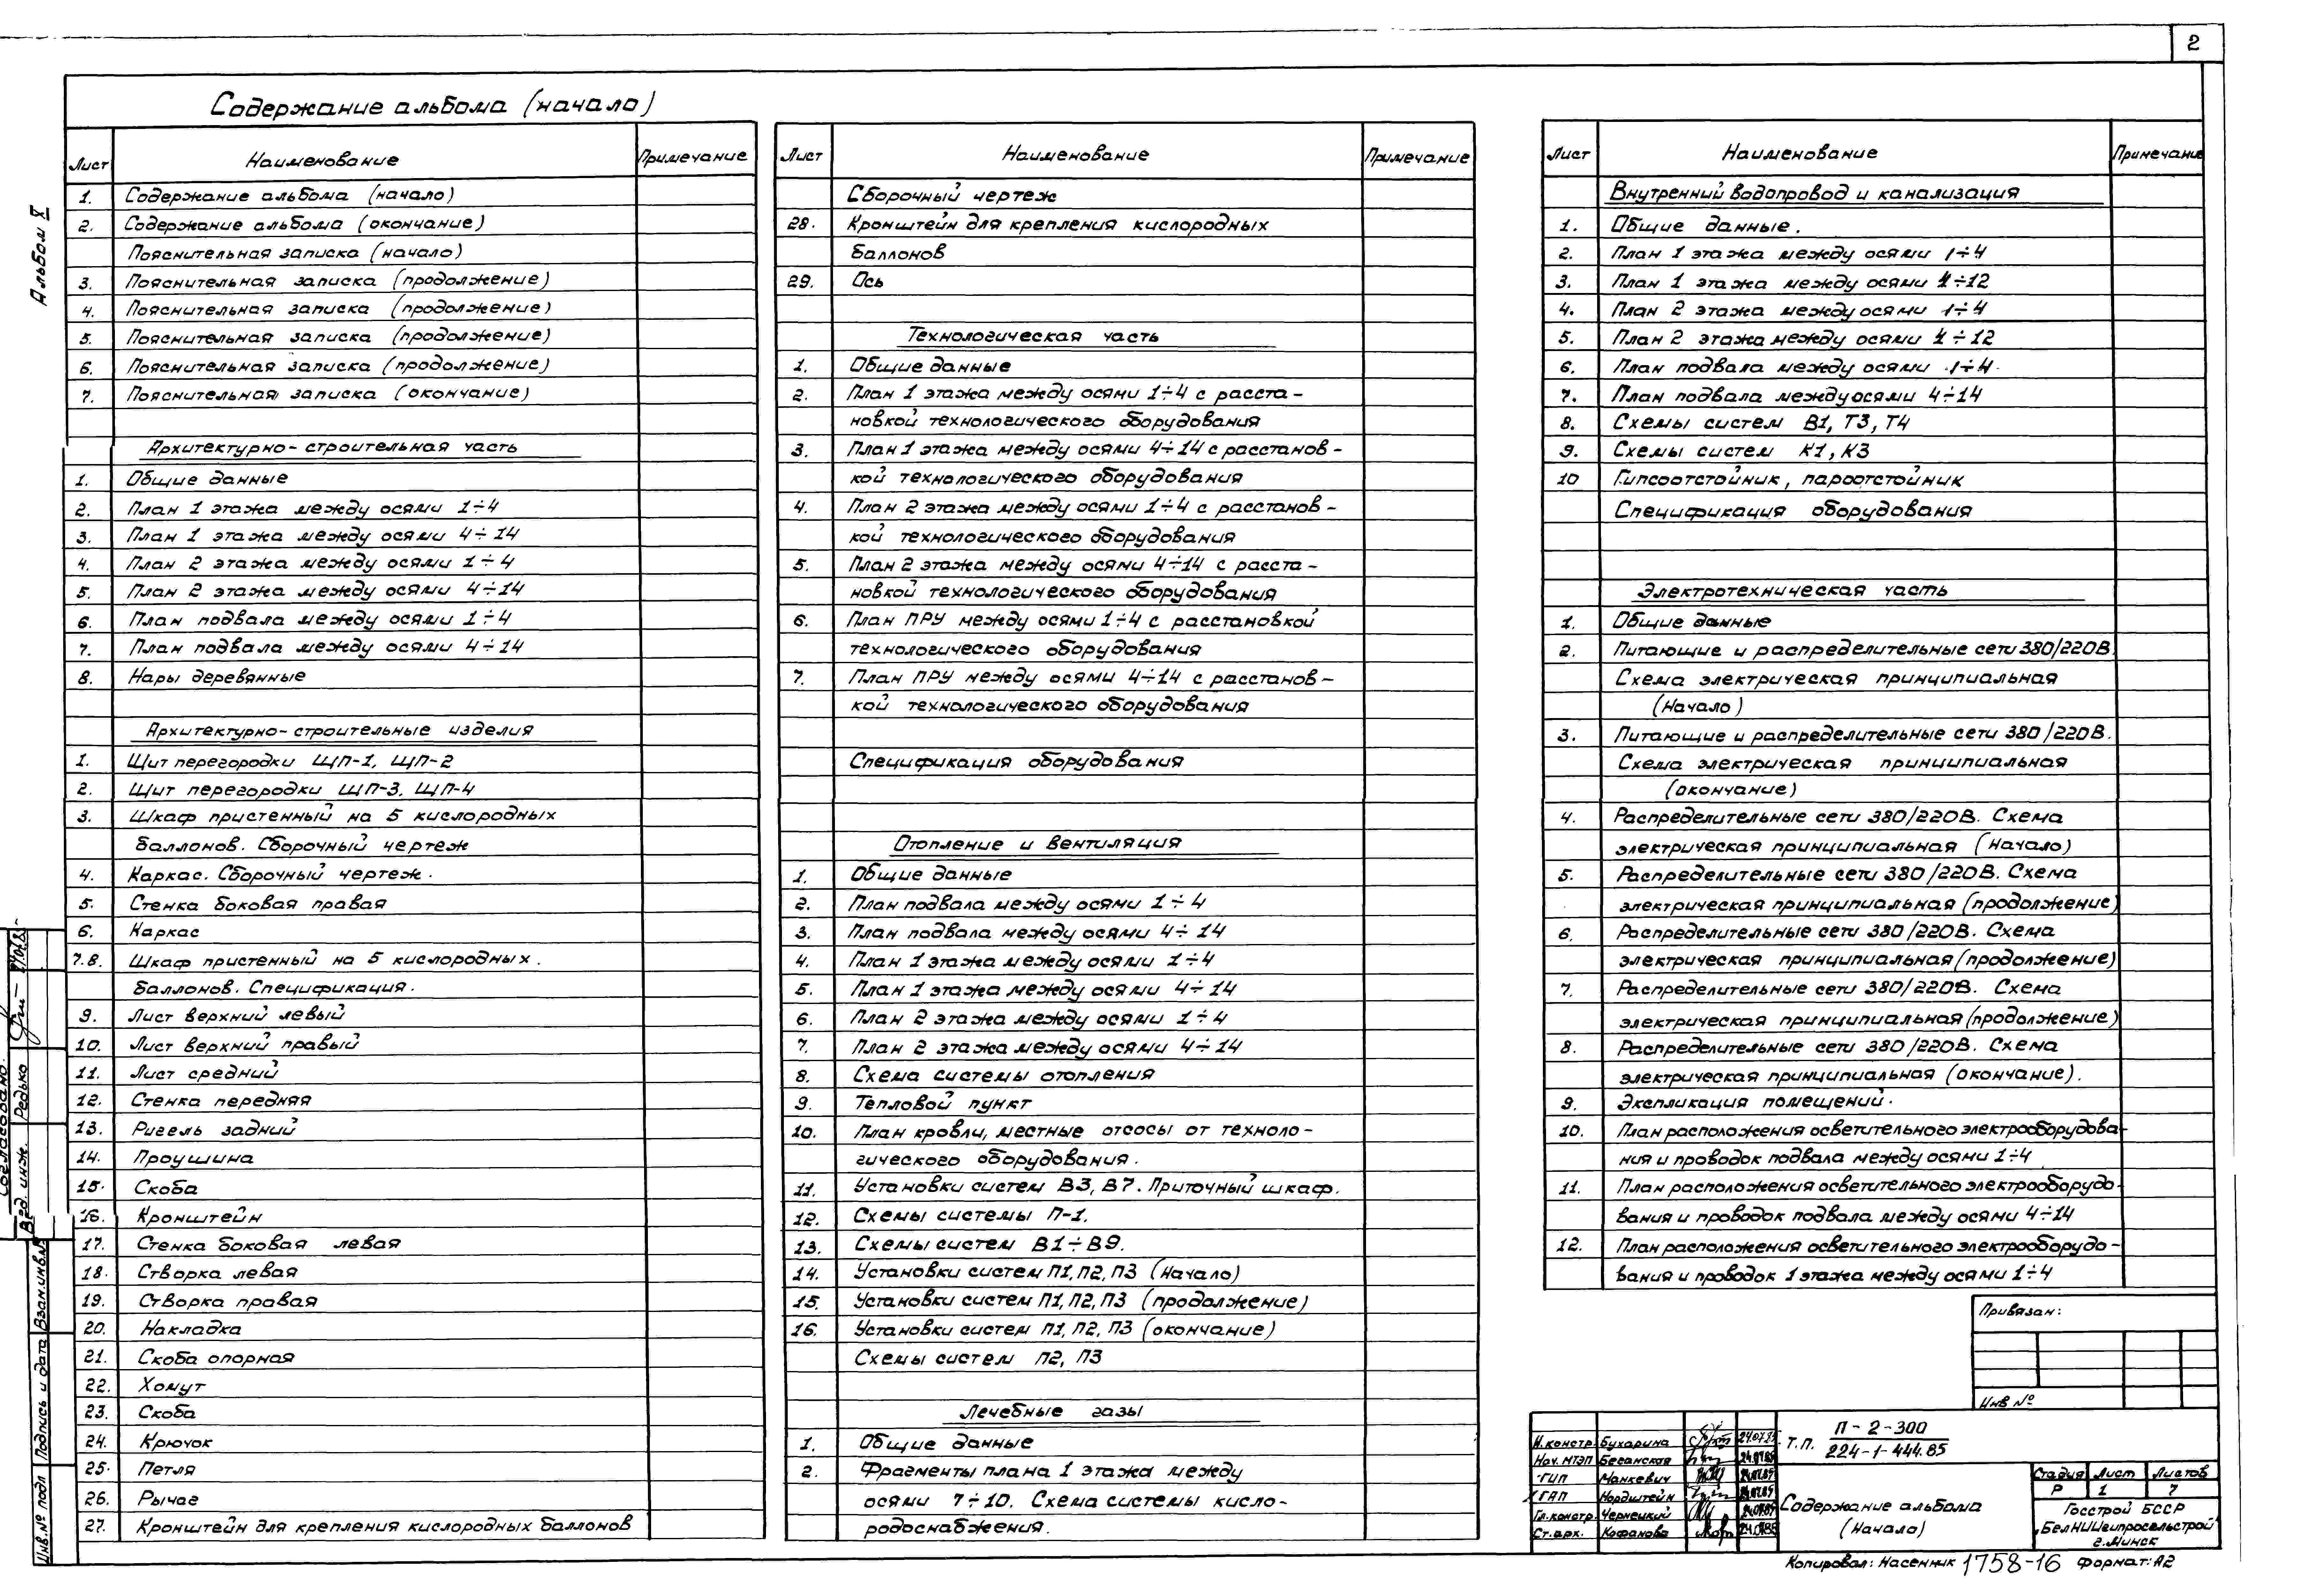 2
Альбом X
Содержание альбома (начало)
Лист Наименование Примечание
1. Содержание альбома (начало)
2. Содержание альбома (окончание)
Пояснительная записка (начало)
3. Пояснительная записка (продолжение)
4. Пояснительная записка (продолжение)
5. Пояснительная записка (продолжение)
6. Пояснительная записка (продолжение)
7. Пояснительная записка (окончание)
Архитектурно-строительная часть
1. Общие данные
2. План 1 этажа между осями 1÷4
3. План 1 этажа между осями 4÷14
4. План 2 этажа между осями 1÷4
5. План 2 этажа между осями 4÷14
6. План подвала между осями 1÷4
7. План подвала между осями 4÷14
8. Нары деревянные
Архитектурно-строительные изделия
1. Щит перегородки ЩП-1, ЩП-2
2. Щит перегородки ЩП-3, ЩП-4
3. Шкаф пристенный на 5 кислородных
баллонов. Сборочный чертеж
4. Каркас. Сборочный чертеж.
5. Стенка боковая правая
6. Каркас
7.8. Шкаф пристенный на 5 кислородных.
баллонов. Спецификация.
9. Лист верхний левый
10. Лист верхний правый
11. Лист средний
12. Стенка передняя
13. Ригель задний
14. Проушина
15. Скоба
16. Кронштейн
17. Стенка боковая левая
18. Створка левая
19. Створка правая
20. Накладка
21. Скоба опорная
22. Хомут
23. Скоба
24. Крючок
25. Петля
26. Рычаг
27. Кронштейн для крепления кислородных баллонов
Лист Наименование Примечание
Сборочный чертеж
28. Кронштейн для крепления кислородных
баллонов
29. Ось
Технологическая часть
1. Общие данные
2. План 1 этажа между осями 1÷4 с расста-
новкой технологического оборудования
3. План 1 этажа между осями 4÷14 с расстанов-
кой технологического оборудования
4. План 2 этажа между осями 1÷4 с расстанов-
кой технологического оборудования
5. План 2 этажа между осями 4÷14 с расста-
новкой технологического оборудования
6. План ПРУ между осями 1÷4 с расстановкой
технологического оборудования
7. План ПРУ между осями 4÷14 с расстанов-
кой технологического оборудования
Спецификация оборудования
Отопление и вентиляция
1. Общие данные
2. План подвала между осями 1÷4
3. План подвала между осями 4÷14
4. План 1 этажа между осями 1÷4
5. План 1 этажа между осями 4÷14
6. План 2 этажа между осями 1÷4
7. План 2 этажа между осями 4÷14
8. Схема системы отопления
9. Тепловой пункт
10. План кровли, местные отсосы от техноло-
гического оборудования.
11. Установки систем В3, В7. Приточный шкаф.
12. Схемы системы П-1.
13. Схемы систем В1÷В9.
14. Установки систем П1, П2, П3 (начало)
15. Установки систем П1, П2, П3 (продолжение)
16. Установки систем П1, П2, П3 (окончание)
Схемы систем П2, П3
Лечебные газы
1. Общие данные
2. Фрагменты плана 1 этажа между
осями 7÷10. Схема системы кисло-
родоснабжения.
Лист Наименование Примечание
Внутренний водопровод и канализация
1. Общие данные.
2. План 1 этажа между осями 1÷4
3. План 1 этажа между осями 4÷12
4. План 2 этажа между осями 1÷4
5. План 2 этажа между осями 4÷12
6. План подвала между осями 1÷4
7. План подвала между осями 4÷14
8. Схемы систем В1, Т3, Т4
9. Схемы систем К1, К3
10 Гипсоотстойник, пароотстойник
Спецификация оборудования
Электротехническая часть
1. Общие данные
2. Питающие и распределительные сети 380/220В.
Схема электрическая принципиальная
(начало)
3. Питающие и распределительные сети 380/220В.
Схема электрическая принципиальная
(окончание)
4. Распределительные сети 380/220В. Схема
электрическая принципиальная (начало)
5. Распределительные сети 380/220В. Схема
электрическая принципиальная (продолжение)
6. Распределительные сети 380/220В. Схема
электрическая принципиальная (продолжение)
7. Распределительные сети 380/220В. Схема
электрическая принципиальная (продолжение)
8. Распределительные сети 380/220В. Схема
электрическая принципиальная (окончание).
9. Экспликация помещений.
10. План расположения осветительного электрооборудова-
ния и проводок подвала между осями 1÷4
11. План расположения осветительного электрооборудо-
вания и проводок подвала между осями 4÷14
12. План расположения осветительного электрооборудо-
вания и проводок 1 этажа между осями 1÷4
Привязан:
Инв №
Н.констр. Бухарина 24.07.85
Нач. МТЭП Беганская 24.07.85
ГИП Манкевич 24.07.85
ГАП Нордштейн 24.07.85
Гл.констр. Чернецкий 24.07.85
Ст.арх. Кофанова 24.07.85
Т.П. П-2-300
224-1-444.85
Содержание альбома
(начало)
Стадия Лист Листов
Р 1 7
Госстрой БССР
БелНИИгипросельстрой
г.Минск
Копировал: Насенник 1758-16 Формат: А2
Согласовано:
Вед. инж. Редько
Инв.№ подл Подпись и дата Взам.инв.№